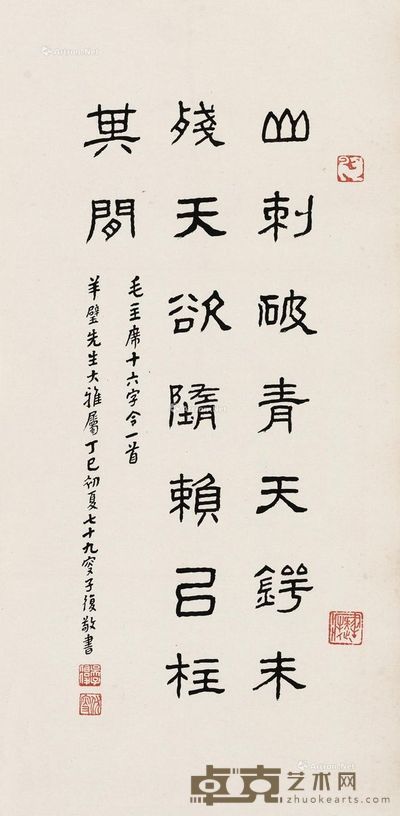 山刺破青天鍔未
殘天欲墮賴㠯柱
其間
毛主席十六字令一首
羊璧先生大雅屬丁巳初夏七十九叟子復敬書
卓克艺术网
www.zhuokearts.com
Artron.Net